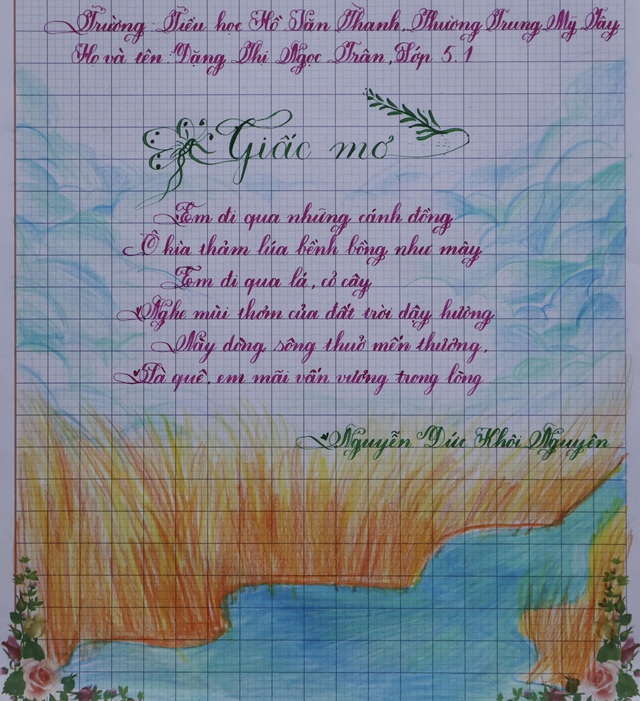 Trường Tiểu học Hồ Văn Thanh, Phường Trung Mỹ Tây
Họ và tên: Đặng Thị Ngọc Trân, Lớp 5.1
Giấc mơ
Em đi qua những cánh đồng
Ô kìa thảm lúa bềnh bồng như mây
Em đi qua lá, cỏ cây
Nghe mùi thơm của đất trời dậy hương
Này dòng sông thuở mến thương,
Là quê, em mãi vấn vương trong lòng
Nguyễn Đức Khôi Nguyên